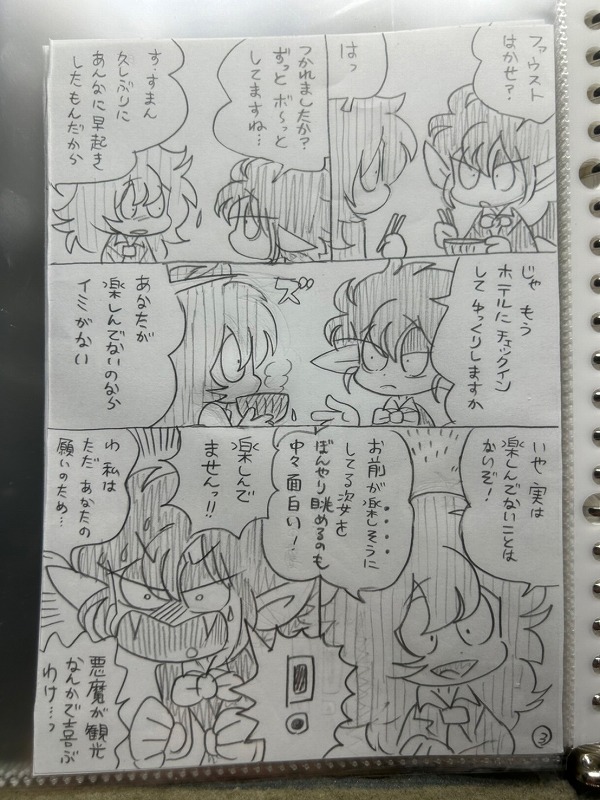 ファウスト
はかせ?
はっ
つかれましたか?
ずっと ボ〜っと
してますね…
す、すまん
久しぶりに
あんなに早起き
したもんだから
じゃ もう
ホテルにチェックイン
して ゆっくりしますか
ズ
あなたが
楽しんでないのなら
イミがない
いや 実は
楽しんでないことは
ないぞ!
お前が楽しそうに
してる姿を
ぼんやり眺めるのも
中々面白い!
楽しんで
ませんっ!!
わ 私は
ただ あなたの
願いのため…
!
悪魔が観光
なんかで喜ぶ
わけ…っ
3